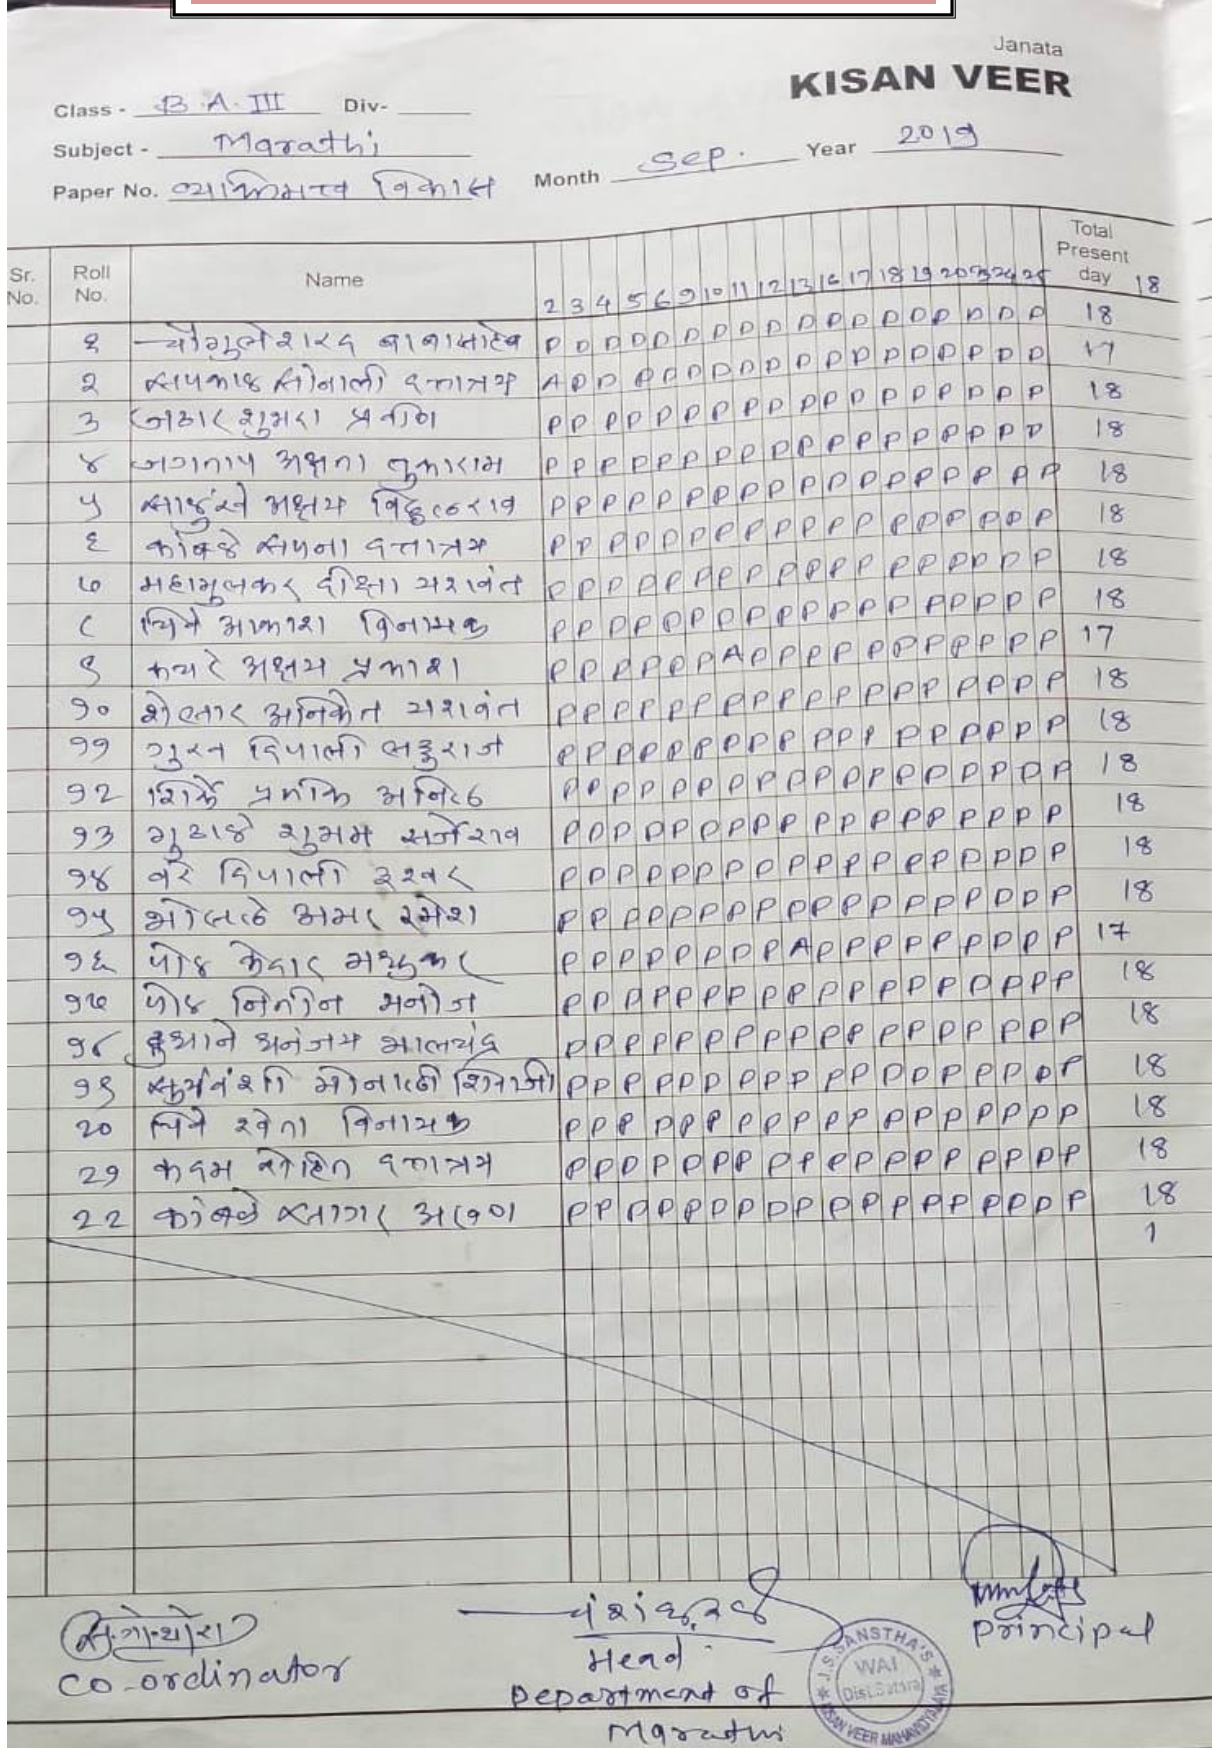 Janata
KISAN VEER
Class - B.A.III Div-
Subject - Marathi
Paper No. व्यक्तिमत्त्व विकास Month Sep. Year 2019
Sr. No. Roll No. Name 2 3 4 5 6 9 10 11 12 13 16 17 18 19 20 23 24 25 Total Present day 18
१ चौगुले शारद बाबासाहेब P P P P P P P P P P P P P P P P P P 18
२ सपकाळ सोनाली दत्तात्रय A P P P P P P P P P P P P P P P P P 17
३ जठार शुभदा प्रवीण P P P P P P P P P P P P P P P P P P 18
४ जगताप अक्षता तुकाराम P P P P P P P P P P P P P P P P P P 18
५ साळुंखे अक्षय विठ्ठलराव P P P P P P P P P P P P P P P P P P 18
६ कांबळे सपना दत्तात्रय P P P P P P P P P P P P P P P P P P 18
७ महामुलकर दीक्षा यशवंत P P P P P P P P P P P P P P P P P P 18
८ पिसे आकाश विनायक P P P P P P P P P P P P P P P P P P 18
९ कचरे अक्षय प्रकाश P P P P P P A P P P P P P P P P P P 17
१० शेलार अनिकेत यशवंत P P P P P P P P P P P P P P P P P P 18
११ गुरव दिपाली P P P P P P P P P P P P P P P P P P 18
१२ शिर्के प्रतीक अनिल P P P P P P P P P P P P P P P P P P 18
१३ शुभम सर्जेराव P P P P P P P P P P P P P P P P P P 18
१४ वरे दिपाली ईश्वर P P P P P P P P P P P P P P P P P P 18
१५ भोसले अमर रमेश P P P P P P P P P P P P P P P P P P 18
१६ पोळ केदार मधुकर P P P P P P P P A P P P P P P P P P 17
१७ पोळ नितीन मनोज P P P P P P P P P P P P P P P P P P 18
१८ धनंजय भालचंद्र P P P P P P P P P P P P P P P P P P 18
१९ सूर्यवंशी मोनाली शिवाजी P P P P P P P P P P P P P P P P P P 18
२० पिसे श्वेता विनायक P P P P P P P P P P P P P P P P P P 18
२१ कदम रोहित दत्तात्रय P P P P P P P P P P P P P P P P P P 18
२२ कांबळे सागर अरुण P P P P P P P P P P P P P P P P P P 18
1
Co-ordinator
Head
Department of
Marathi
Principal
J.S.SANSTHA'S
WAI
Dist.Satara
KISAN VEER MAHAVIDYALAYA